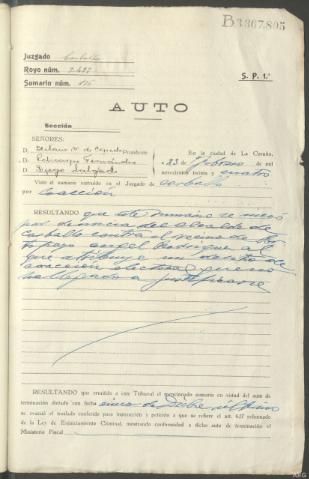 B3367,805
Juzgado Carballo
Royo núm. 2.427
Sumario núm. 116
S. P. 1.ª
AUTO
Sección
SEÑORES:
D. de Cepeda Presidente
D. Fernández
D. Salgado
En la ciudad de La Coruña,
a 23 de Febrero de mil
novecientos treinta y cuatro
Visto el sumario instruido en el Juzgado de Carballo
por coacción
RESULTANDO que este sumario se inició
por denuncia del alcalde de
Carballo contra el vecino de
Rodríguez a
que atribuye un delito de
coacción electoral que no
ha llegado a justificarse
RESULTANDO que remitido a este Tribunal el mencionado sumario en virtud del auto de
terminación dictado con fecha cinco de Dicbre último
se evacuó el traslado conferido para instrucción y petición a que se refiere el art. 627 reformado
de la Ley de Enjuiciamiento Criminal, mostrando conformidad a dicho auto de terminación el
Ministerio Fiscal